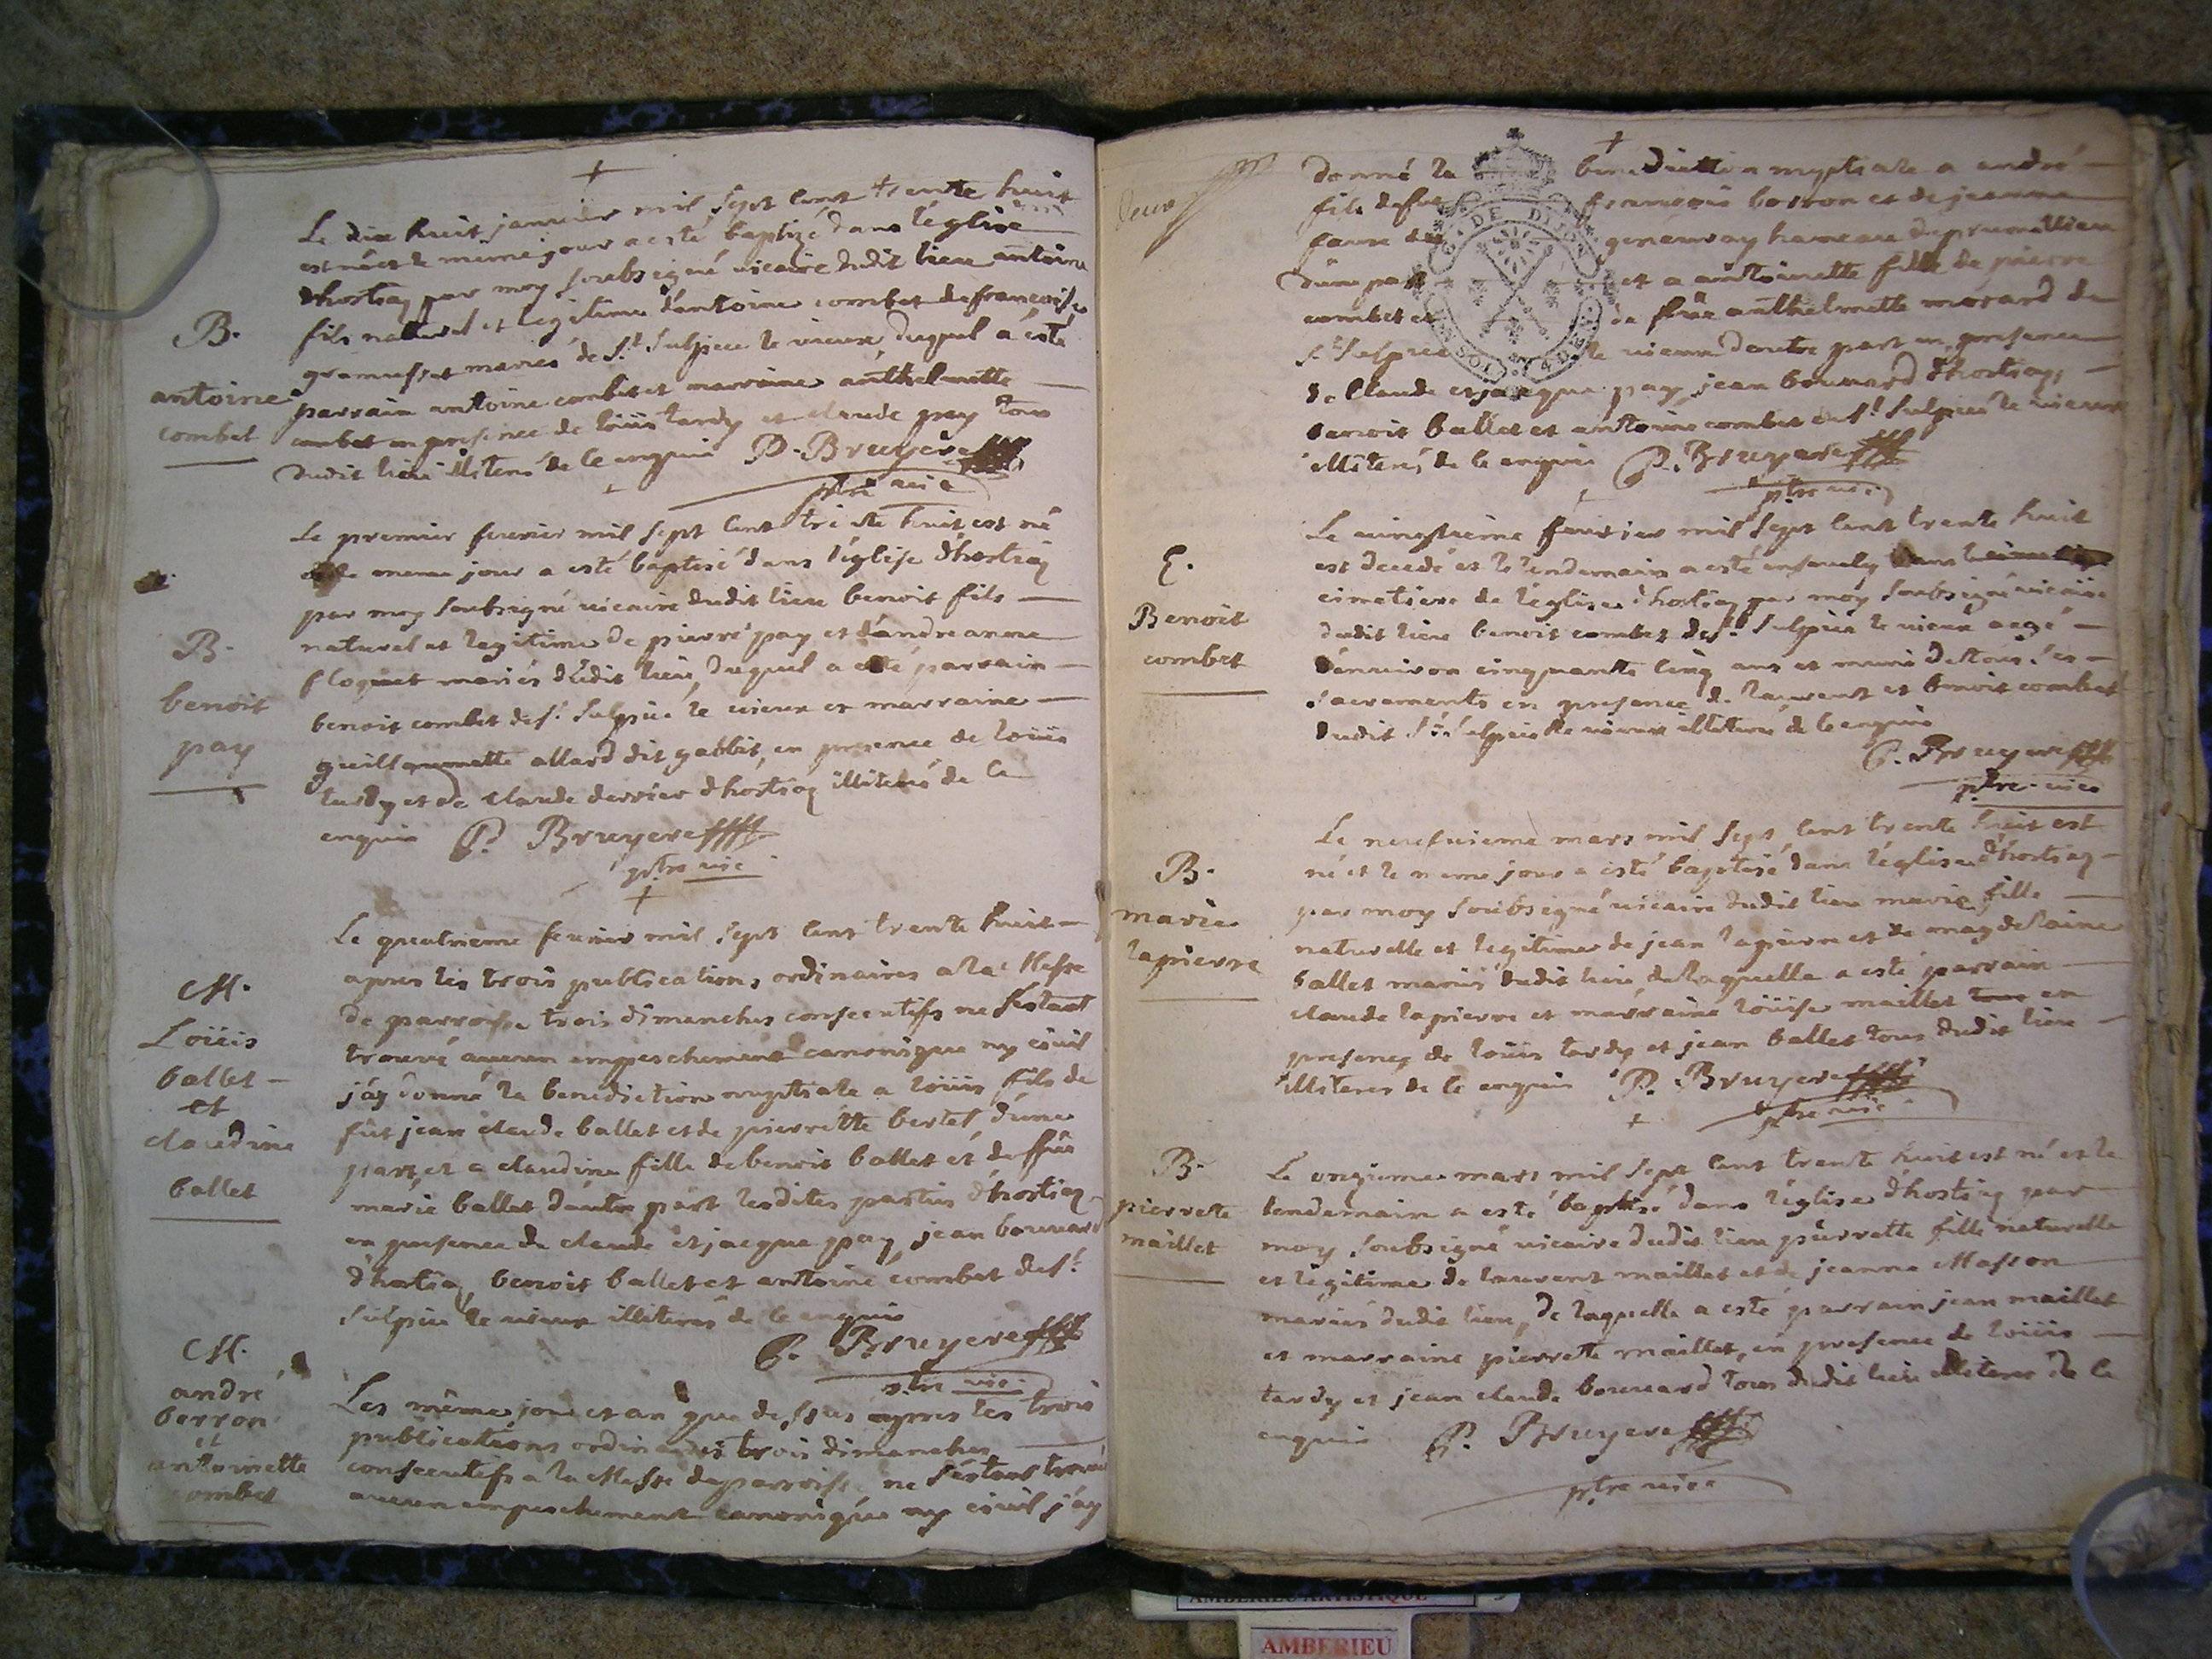 Le dix huit janvier mil sept cent trente huit
est né et le meme jour a esté baptizé dans l'église
d'hostiaz par moy soubsigné vicaire dudit lieu antoine
fils naturel et legitime d'antoine combet et de françoise
mariés de St Sulpice le vieux, duquel a esté
parrain antoine combet et marraine anthelmette
combet en presence de loüis tardy et claude pay tous
dudit lieu illiterés de ce enquis P. Bruyere
ptre vic
B.
antoine
combet
Le premier fevrier mil sept cent trente huit est né
et le meme jour a esté baptisé dans l'église d'hostiaz
par moy soubsigné vicaire dudit lieu benoit fils
naturel et legitime de pierre pay et d'andreanne
floquet mariés dudit lieu, duquel a esté parrain
benoit combet de St Sulpice le vieux et marraine
guillaumette allard dit gabbit, en presence de loüis
tardy et de claude derrier d'hostiaz illiterés de ce
enquis P. Bruyere
ptre vic
B.
benoit
pay
Le quatrieme fevrier mil sept cent trente huit
apres les trois publications ordinaires a la Messe
de parroisse trois dimanches consecutifs ne s'estant
trouvé aucun empeschement canonique ny civil
j'ay donné la benediction nuptiale a loüis fils de
fût jean claude ballet et de pierrette bertet d'une
part, et a claudine fille de benoit ballet et de ffüe
marie ballet d'autre part lesdites parties d'hostiaz
en presence de claude et jacque pay, jean bouvard
d'hostiaz, benoit ballet et antoine combet de St
Sulpice le vieux illiterés de ce enquis
P. Bruyere
ptre vic
M.
Loüis
ballet
et
claudine
ballet
Les même jour et an que dessus apres les trois
publications ordinaires trois dimanches
consecutifs a la Messe de parroisse ne s'estant trouvé
aucun empeschement canonique ny civil j'ay
M.
andré
borron
et
antoinette
combet
donné la benediction nuptiale a andré
fils de fut françois borron et de jeanne
faure de hameau de prumillieu
d'une part et a antoinette fille de pierre
combet et de füe anthelmette morard de
St Sulpice le vieux d'autre part en presence
de claude et jacque pay, jean bouvard d'hostiaz,
benoit ballet et antoine combet de St Sulpice le vieux
illiterés de ce enquis P. Bruyere
ptre vic
Le vingtieme fevrier mil sept cent trente huit
est decedé et le lendemain a esté ensevely dans
cimetiere de l'église d'hostiaz par moy soubsigné vicaire
dudit lieu benoit combet de St Sulpice le vieux agé
d'environ cinquante cinq ans et muni de tous ses
sacrements en presence de laurent et benoit combet
dudit St Sulpice le vieux illiterés de ce enquis
P. Bruyere
ptre vic
E.
Benoit
combet
Le neufvieme mars mil sept cent trente huit est
né et le meme jour a esté baptisé dans l'église d'hostiaz
par moy soubsigné vicaire dudit lieu marie fille
naturelle et legitime de jean lapierre et de magdelaine
ballet mariés dudit lieu, de laquelle a esté parrain
claude lapierre et marraine loüise maillet tous en
presence de loüis tardy et jean ballet tous dudit lieu
illiterés de ce enquis P. Bruyere
ptre vic
B.
marie
lapierre
Le onzieme mars mil sept cent trente huit est né et le
lendemain a esté baptisé dans l'église d'hostiaz par
moy soubsigné vicaire dudit lieu pierrette fille naturelle
et legitime de laurent maillet et de jeanne Masson
mariés dudit lieu, de laquelle a esté parrain jean maillet
et marraine pierrette maillet, en presence de loüis
tardy et jean claude bouvard tous dudit lieu illiterés de ce
enquis P. Bruyere
ptre vic
B.
pierrette
maillet
AMBERIEU ARTISTIQUE
AMBERIEU